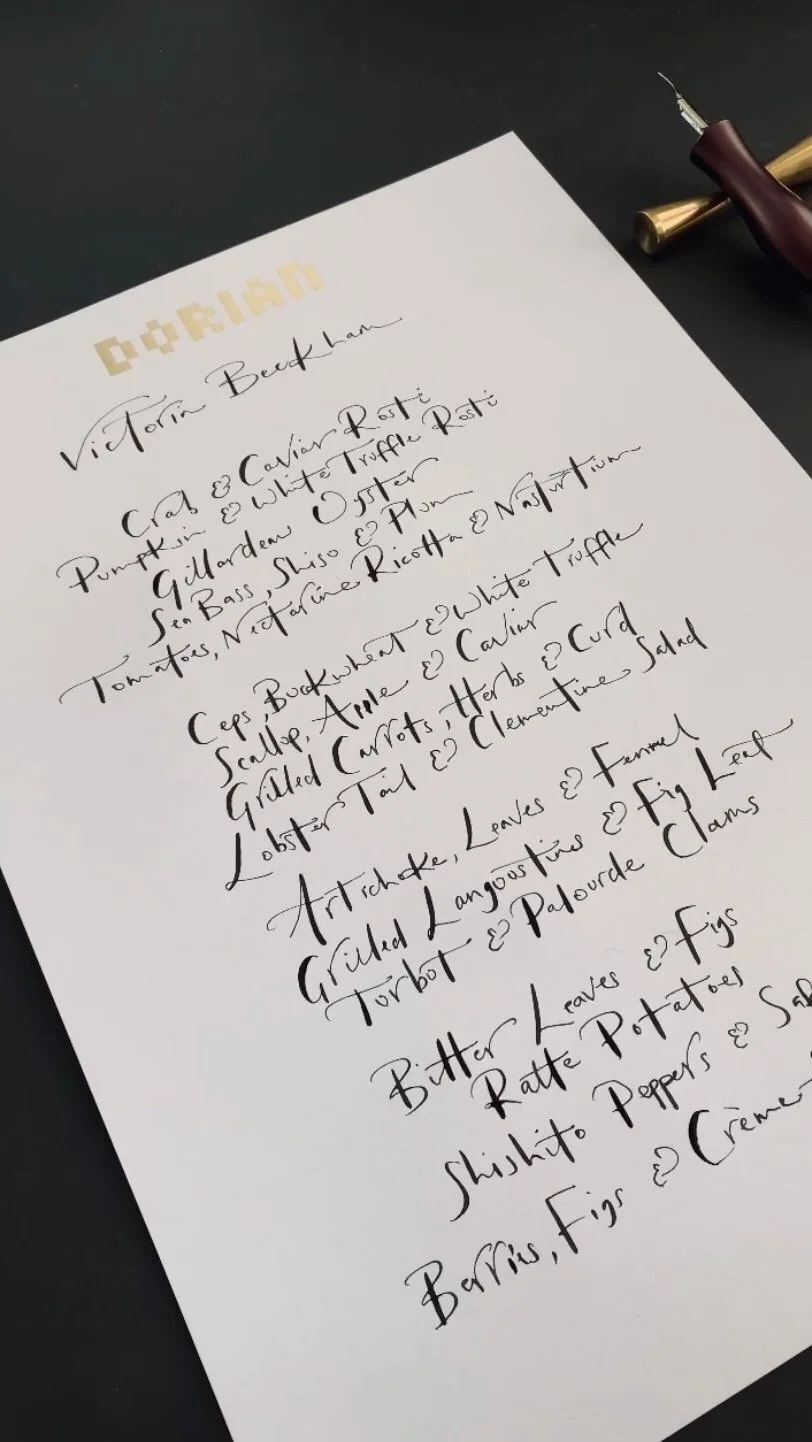 DORIAN
Victoria Beckham
Crab & Caviar Rösti
Pumpkin & White Truffle Rösti
Gillardeau Oyster
Sea Bass, Shiso & Plum
Tomatoes, Nectarine Ricotta & Nasturtium
Ceps, Buckwheat & White Truffle
Scallop, Apple & Caviar
Grilled Carrots, Herbs & Curd
Lobster Tail & Clementine Salad
Artichoke, Leaves & Fennel
Grilled Langoustines & Fig Leaf
Turbot & Palourde Clams
Bitter Leaves & Figs
Ratte Potatoes
Shishito Peppers &
Berries, Figs & Crème